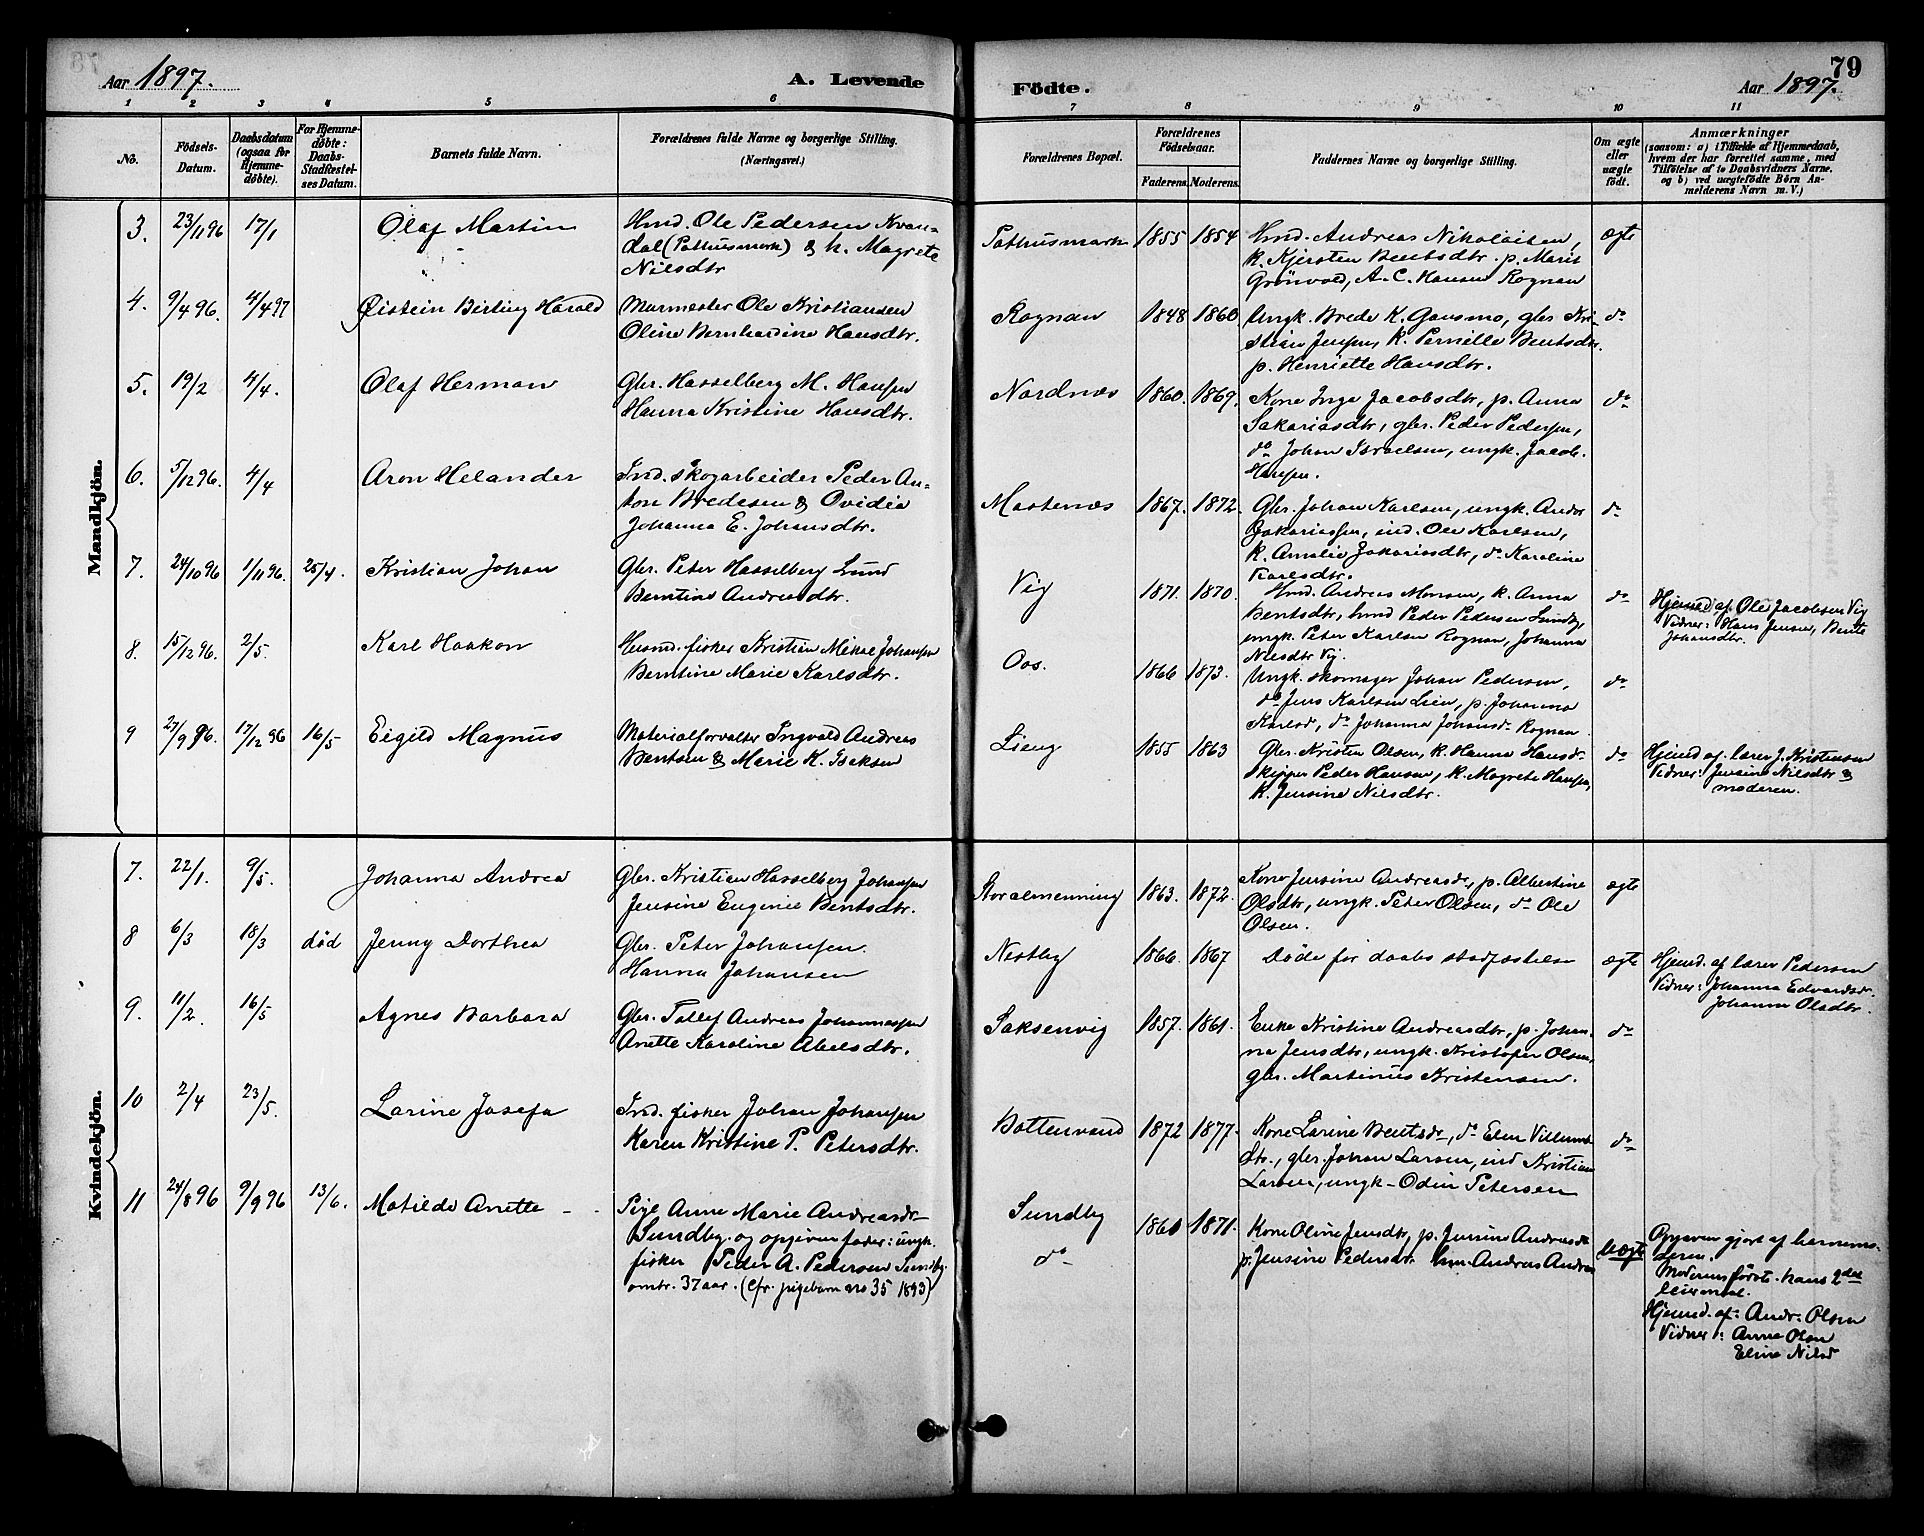 Aar 1897.
A. Levende
Födte.
Aar 1897.
79
1 2 3 4 5 6 7 8 9 10 11
No.
Födsels-
Datum.
Daabsdatum
(ogsaa for
Hjemme-
döbte).
For Hjemme-
döbte:
Daabs-
Stadfæstel-
ses Datum.
Barnets fulde Navn.
Forældrenes fulde Navne og borgerlige Stilling.
(Næringsvei.)
Forældrenes Bopæl.
Forældrenes
Födselsaar.
Faderens. Moderens.
Faddernes Navne og borgerlige Stilling.
Om ægte
eller
uægte
födt.
Anmærkninger
(saasom: a) i Tilfælde af Hjemmedaab,
hvem der har forrettet samme, med
Tilföielse af to Daabsvidners Navne,
og b) ved uægtefödte Börn An-
melderens Navn m. V.)
Mandkjön.
3. 23/11 96 17/1 Olaf Martin
Hmd. Ole Pedersen Kvan-
dal (Pothusmark) & k. Magrete
Nilsdtr
Pothusmark 1855 1854
Hmd. Andreas Nikolaisen,
k. Kjersten Bentsdtr. p. Marit
Grönvold, A. C. Hansen Rognan
ægte
4. 9/4 96. 4/4 97 Øistein Birting Harald
Murmester Ole Kristiansen
Oline Bernhardine Hansdtr.
Rognan 1848 1860
Ungk. Brede K. Gausmo, gbr. Kri-
stian Jensen, k. Pernille Bentsdtr.
p. Henriette Hansdtr.
do
5. 19/2 4/4. Olaf Herman
Gbr. Hasselberg M. Hansen
Hanna Kristine Hansdtr.
Nordnæs 1860. 1869.
Kone Inga Jacobsdtr, p. Anna
Sakariasdtr, gbr. Peder Pedersen,
do Johan Israelsen, ungk. Jacob
Hansen.
do
6. 5/12 96. 4/4 Aron Helander
Ind. skogarbeider Peder An-
ton Bredesen & Ovidia
Johanna E. Johansdtr.
Mastenæs 1867. 1872.
Gbr. Johan Karlsen, ungk. Andr.
Zakariassen, ind. Ole Karlsen,
k. Amalie Zakariasdtr, do Karoline
Karlsdtr.
do
7. 24/10 96 1/11 96. 25/4. Kristian Johan
Gbr. Peter Hasselberg Lund
Berntine Andreasdtr.
Vig 1871. 1870.
Hmd. Andreas Monsen, k. Anna
Bentsdtr, hmd Peder Pedersen Sundby,
ungk. Peter Karlsen Rognan, Johanna
Nilsdtr Vig.
do
Hjemmed af Ole Jacobsen Vig
Vidner: Hans Jensen, Bente
Johansdtr.
8. 15/12 96. 2/5. Karl Haakon
Husmd. fisker Kristian Mikal Johansen
Berntine Marie Karlsdtr.
Oos. 1866 1873.
Ungk. skomager Johan Pedersen,
do Jens Karlsen Lien, p. Johanna
Karlsd, do Johanna Johansd. Rognan
do
9 27/9 96. 17/12 96 16/5 Eigild Magnus
Materialforvalter Ingvald Andreas
Bentsen & Marie K. Isaksen
Lieng 1855 1863
Gbr. Kristen Olsen, k. Hanna Hansd-
skipper Peder Hansen, k. Magrete Hansen,
k. Jensine Nilsdtr.
do
Hjemd af lærer J. Kristensen
Vidner: Jensine Nilsdtr &
moderen.
Kvindekjön.
7. 22/1. 9/5. Johanna Andrea
Gbr. Kristian Hasselberg Johansen
Jensine Eugenie Bentsdtr.
Storalmenning 1863. 1872.
Kone Jensine Andreasdr, p. Albertine
Olsdtr, ungk. Peter Olsen, do Ole
Olsen.
ægte
8 6/3 18/3 död Jenny Dorthea
Gbr. Peter Johansen.
Hanna Johansen
Nestby 1866. 1867
Döde för daabs stadfæstelse
ægte
Hjemd. af lærer Pedersen
Vidner: Johanna Edvardsdr.
Johanna Olsdtr.
9. 11/2. 16/5 Agnes Barbara
Gbr. Tollef Andreas Johannessen
Anette Karoline Abelsdtr.
Saksenvig 1857. 1861.
Enke Kristine Andreasdtr, p. Johan-
na Jensdtr, ungk. Kristofer Olsen,
gbr. Martinus Kristensen.
do
10 2/4 23/5. Larine Josefa
Ind. fisker Johan Johansen
Karen Kristine P. Petersdtr.
Bottenvand 1872 1877.
Kone Larine Bentsdr, do Elen Villums-
dtr., gbr. Johan Larsen, ind Kristian
Larsen, ungk- Odin Petersen
do
11 24/8 96 9/9 96 13/6. Matilde Anette
Pige Anne Marie Andreasdr
Sundby. og opgiven fader: ungk.
fisker Peder A. Pedersen Sundby.
omtr. 37 aar. (cfr. pigebarn no 35 1893)
Sundby
do
1860 1871.
Kone Oline Jensdtr, p. Jensine Andreasdr
p. Jensine Pedersdtr hm. Andreas Andrea
Uægte
Opgaven gjort af barnemo-
deren.
Moderens förste- hans 2det
leiermaal.
Hjemd. af: Andr. Olsen
Vidner: Anna Olsen
Eline Nilsd